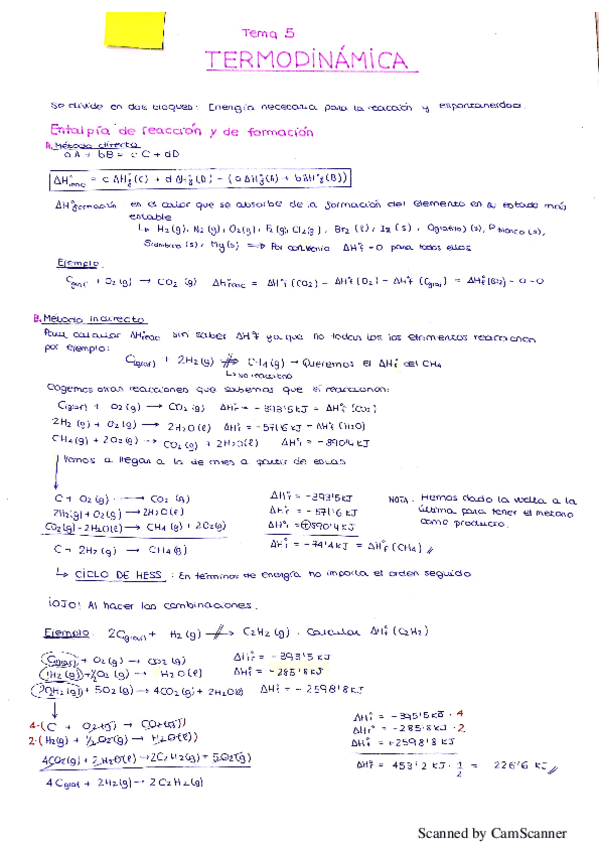 Tema 5
TERMODINÁMICA
Se divide en dos bloques: Energía necesaria para la reacción y espontaneidad.
Entalpía de reacción y de formación
A. Método directo
aA + bB = cC + dD
ΔH°reac = c ΔH°f(C) + d ΔH°f(D) - (a ΔH°f(A) + b ΔH°f(B))
ΔH°formación es el calor que se absorbe de la formación del elemento en su estado más
estable
↳ H2(g), N2(g), O2(g), F2(g), Cl2(g), Br2(l), I2(s), Cgrafito(s), Pblanco(s),
(s), Mg(s) ⟹ Por convenio ΔH°f = 0 para todos ellos
Ejemplo.
Cgraf + O2(g) → CO2(g) ΔH°reac = ΔH°f(CO2) - ΔH°f(O2) - ΔH°f(Cgraf) = ΔH°f(CO2) - 0 - 0
B. Método indirecto
Para calcular ΔH°reac sin saber ΔH°f ya que no todos los elementos reaccionan
por ejemplo:
C(graf) + 2H2(g) ⇏ CH4(g) → Queremos el ΔH°f del CH4
↳ no reacciona
Cogemos otras reacciones que sabemos que sí reaccionan:
C(graf) + O2(g) → CO2(g) ΔH°r = -393'5 KJ = ΔH°f(CO2)
2H2(g) + O2(g) → 2H2O(l) ΔH°r = -571'6 KJ - ΔH°f(H2O)
CH4(g) + 2O2(g) → CO2(g) + 2H2O(l) ΔH°r = -890'4 KJ
Vamos a llegar a la de antes a partir de estas
C + O2(g) → CO2(g) ΔH°r = -393'5 KJ NOTA. Hemos dado la vuelta a la
2H2(g) + O2(g) → 2H2O(l) ΔH°r = -571'6 KJ última para tener el metano
CO2(g) + 2H2O(l) → CH4(g) + 2O2(g) ΔH°r = +890'4 KJ como producto.
C + 2H2(g) → CH4(g) ΔH°r = -74'4 KJ = ΔH°f(CH4)
↳ CICLO DE HESS: En términos de energía no importa el orden seguido
¡OJO! Al hacer las combinaciones.
Ejemplo. 2C(graf) + H2(g) ⇏ C2H2(g). Calcular ΔH°f(C2H2)
C(graf) + O2(g) → CO2(g) ΔH°r = -393'5 KJ
H2(g) + ½O2(g) → H2O(l) ΔH°r = -285'8 KJ
2C2H2(g) + 5O2(g) → 4CO2(g) + 2H2O(l) ΔH°r = -2598'8 KJ
4·(C + O2(g) → CO2(g)) ΔH°r = -393'5 KJ · 4
2·(H2(g) + ½O2(g) → H2O(l)) ΔH°r = -285'8 KJ · 2
4CO2(g) + 2H2O(l) → 2C2H2(g) + 5O2(g) ΔH°r = +2598'8 KJ
4Cgraf + 2H2(g) → 2C2H2(g) ΔH°f = 453'2 KJ · ½ = 226'6 KJ
Scanned by CamScanner